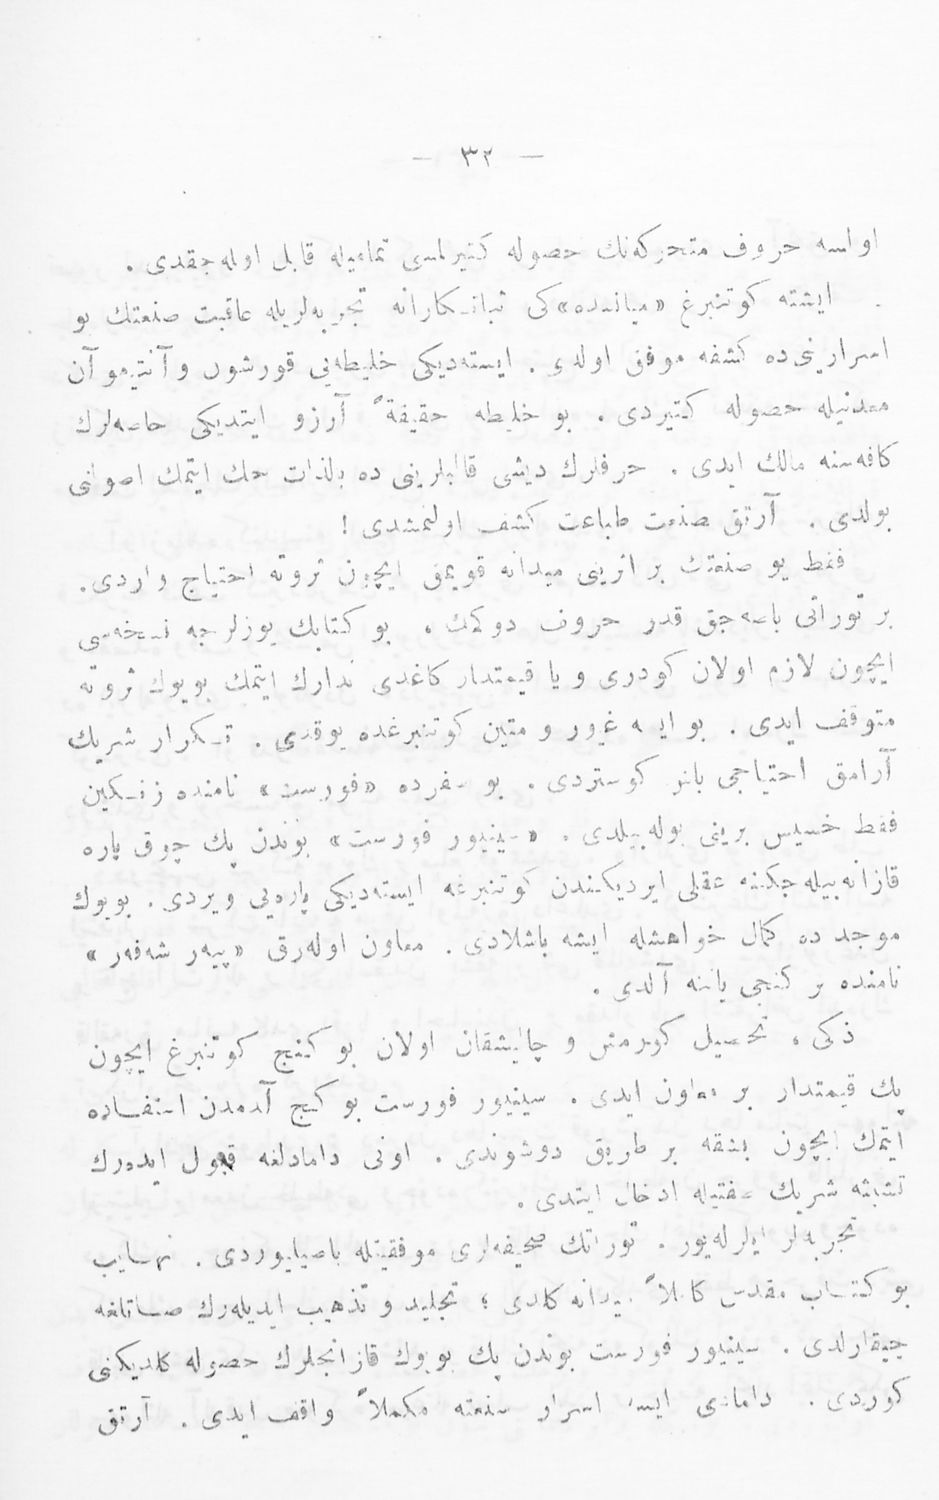 — ٣٢ —
اولسه حروف متحركه‌نك حصوله كتيرلمسى تماميله قابل اوله‌جقدى .
ايشته كوتنبرغ «ميانسده»كى ثباتكارانه تجربه‌لريله عاقبت صنعتك بو
اسرارينى ده كشفه موفق اولدى . ايسته‌ديكى خليطه‌يى قورشون و آنتيموآن
معدنيله حصوله كتيردى . بو خليطه حقيقةً آرزو ايتديكى خاصه‌لرك
كافه‌سنه مالك ايدى . حرفلرك ديشى قالبلرينى ده بالذات حك ايتمك اصولنى
بولدى . آرتق صنعت طباعت كشف اولنمشدى !
فقط بو صنعتك بر اثرينى ميدانه قويمق ايچون ثروته احتياج واردى .
بر توراتى باصه‌جق قدر حروف دوكمك ، بو كتابك يوزلرجه نسخه‌سى
ايچون لازم اولان كودرى ويا قيمتدار كاغدى تدارك ايتمك بويوك ثروته
متوقف ايدى . بو ايسه غيور و متين كوتنبرغده يوقدى . تكرار شريك
آرامق احتياجى باش كوستردى . بو سفرده «فورست» نامنده زنكين
فقط خسيس برينى بوله‌بيلدى . «سينيور فورست» بوندن پك چوق پاره
قازانه‌بيله‌جكنه عقلى ايرديكندن كوتنبرغه ايسته‌ديكى پاره‌يى ويردى . بويوك
موجد ده كمال خواهشله ايشه باشلادى . معاون اوله‌رق «پيه‌ر شه‌فه‌ر»
نامنده بر كنجى ياننه آلدى .
ذكى ، تحصيل كورمش و چاليشقان اولان بو كنج كوتنبرغ ايچون
پك قيمتدار بر معاون ايدى . سينيور فورست بو كنج آدمدن استفاده
ايتمك ايچون بشقه بر طريق دوشوندى . اونى دامادلغه قبول ايده‌رك
تشبثه شريك صفتيله ادخال ايتدى .
تجربه‌لر ايلرله‌يور . توراتك صحيفه‌لرى موفقيتله باصيليوردى . نهايت
بو كتاب مقدس كاملاً ميدانه كلدى ؛ تجليد و تذهيب ايديله‌رك صاتلغه
چيقارلدى . سينيور فورست بوندن پك بويوك قازانجلرك حصوله كلديكنى
كوردى . دامادى ايسه اسرار صنعته مكملاً واقف ايدى . آرتق